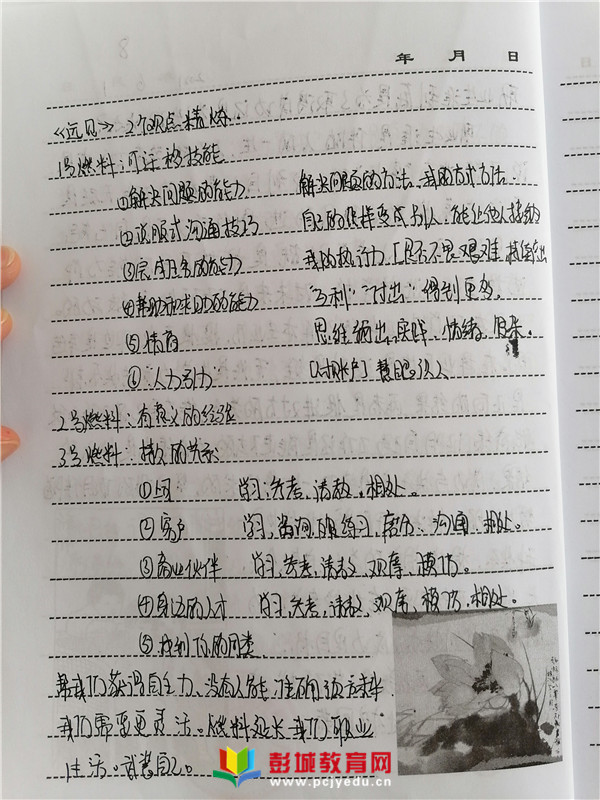 年 月 日
《远见》3个观点精炼.
1号燃料:可迁移技能
①解决问题的能力 解决问题的方法、我的方式方法.
②说服式沟通技巧 自己的 变成别人,能让他人接纳
③完成任务的能力 我的执行力[是否不畏艰难,
④帮助和求助的能力 "互利""付出"得到更多.
⑤情商 思维 输出、实践、情绪、
⑥"人力引力" 慧眼识人
2号燃料:有意义的经验
3号燃料:持久的关系
①上司 学习,参考,请教,相处。
②客户 学习,咨询, 练习, 沟通、相处。
③商业伙伴 学习,参考,请教、观摩、模仿。
④身边的人才 学习,参考,请教,观摩,模仿,相处。
⑤找到你的同类
帮我们获得自主力、没有人能准确预测未来
我们需要更灵活。燃料延长我们职业
生活。武装自己。
彭城教育网
www.pcjyedu.cn